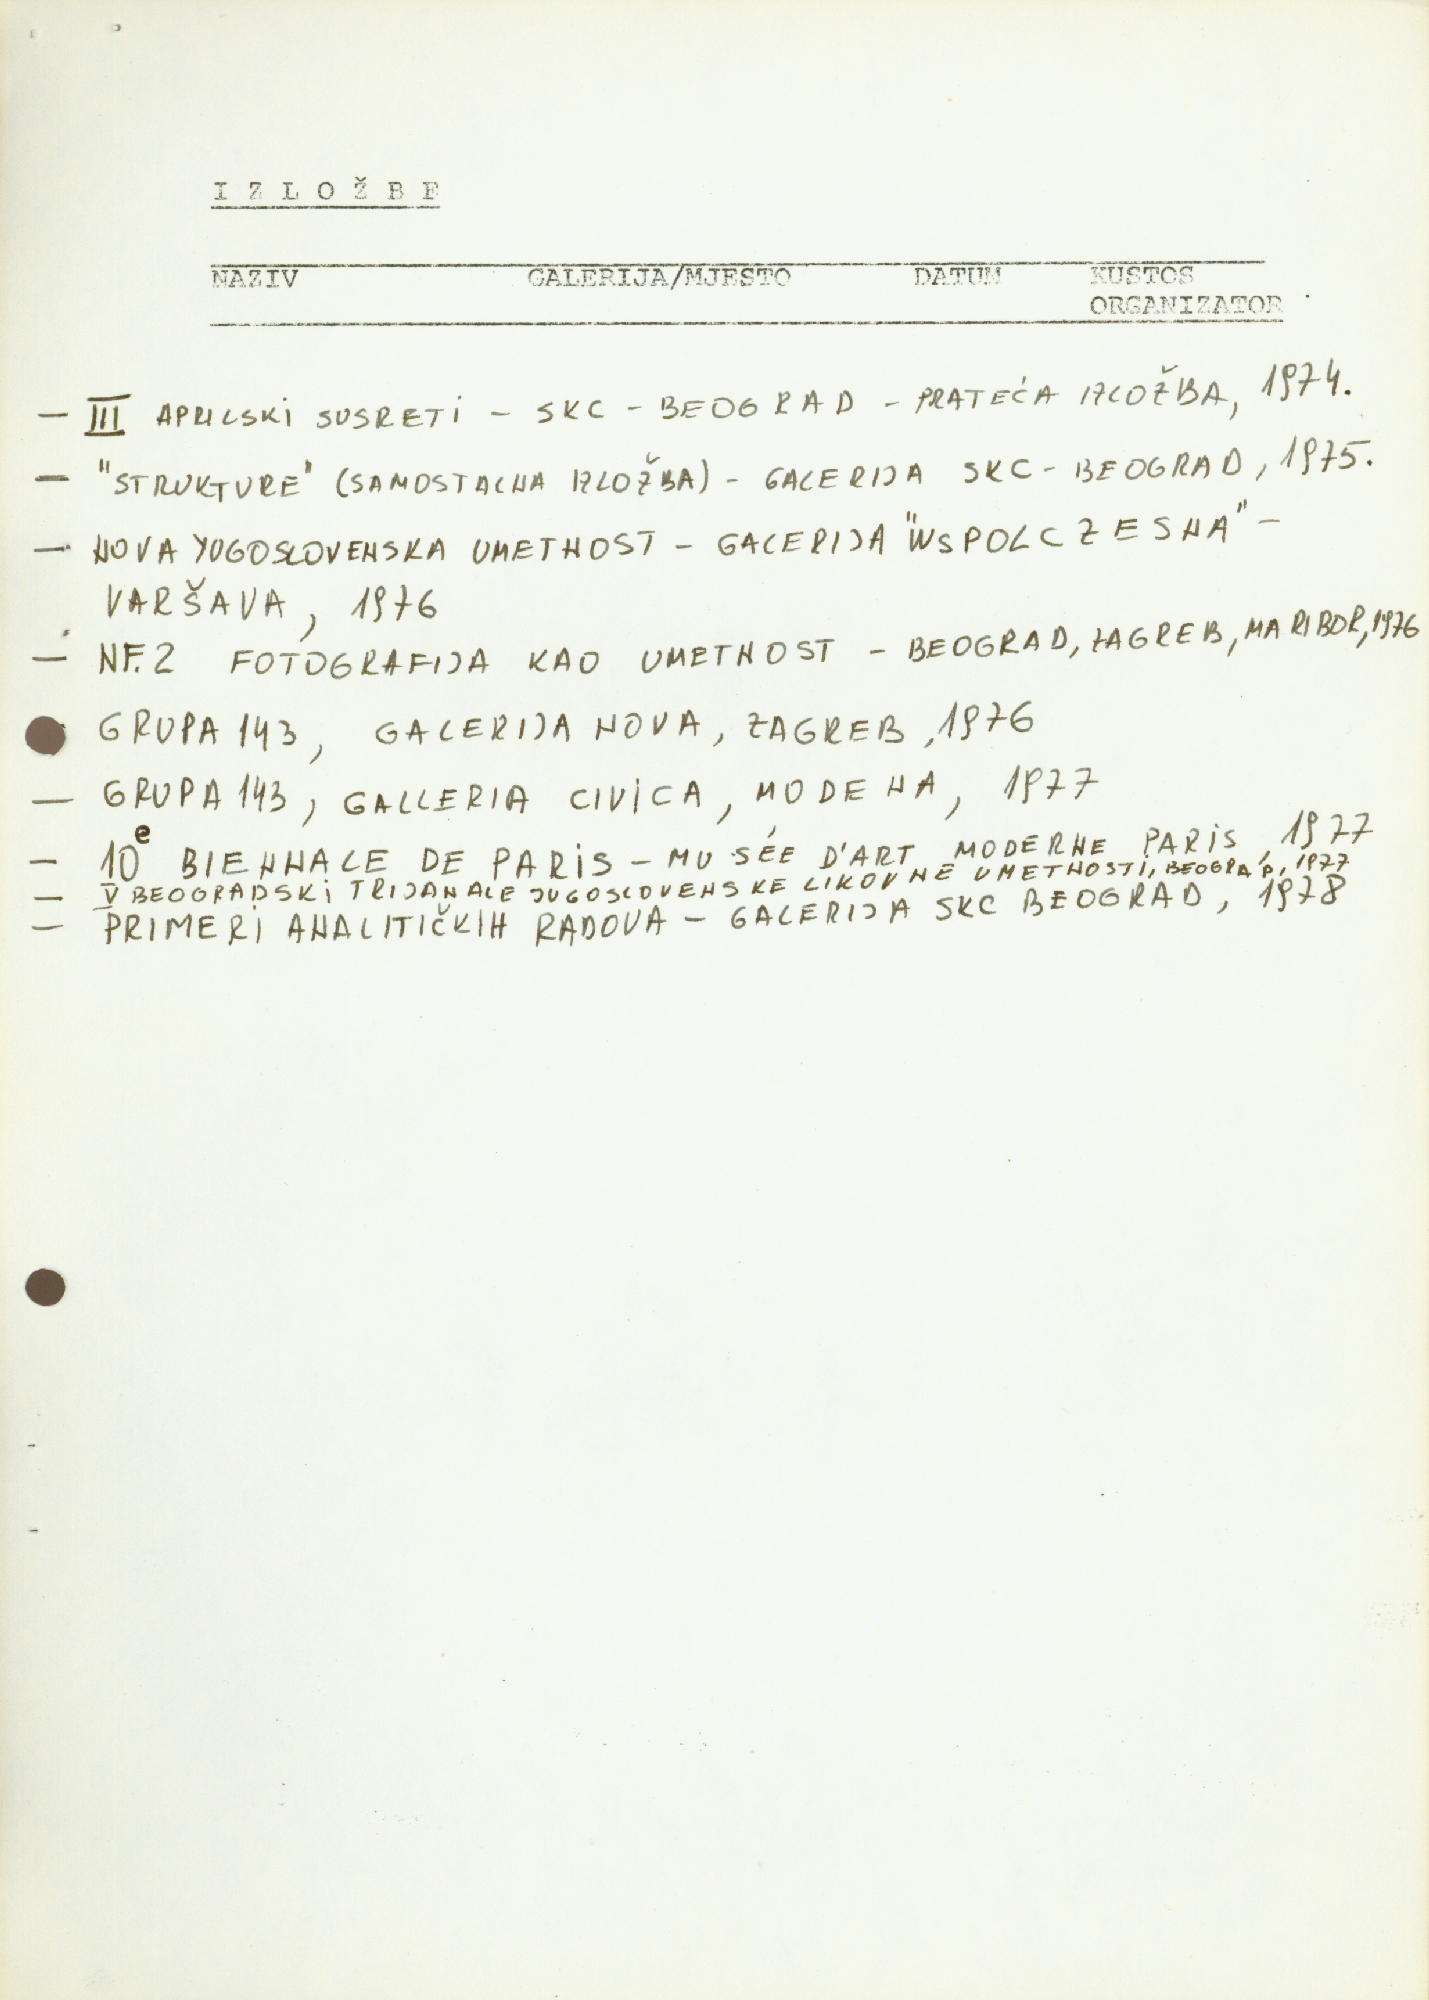 I Z L O Ž B E
NAZIV GALERIJA/MJESTO DATUM KUSTOS
ORGANIZATOR
— III APRILSKI SUSRETI – SKC – BEOGRAD – PRATEĆA IZLOŽBA, 1974.
— "STRUKTURE" (SAMOSTALNA IZLOŽBA) – GALERIJA SKC – BEOGRAD, 1975.
— NOVA YUGOSLOVENSKA UMETNOST – GALERIJA "WSPOLCZESNA" –
VARŠAVA, 1976
— NF.2 FOTOGRAFIJA KAO UMETNOST – BEOGRAD, ZAGREB, MARIBOR, 1976
GRUPA 143, GALERIJA NOVA, ZAGREB, 1976
— GRUPA 143, GALLERIA CIVICA, MODENA, 1977
— 10e BIENNALE DE PARIS – MUSÉE D'ART MODERNE PARIS, 1977
— V BEOGRADSKI TRIJANALE JUGOSLOVENSKE LIKOVNE UMETNOSTI, BEOGRAD, 1977
— PRIMERI ANALITIČKIH RADOVA – GALERIJA SKC BEOGRAD, 1978